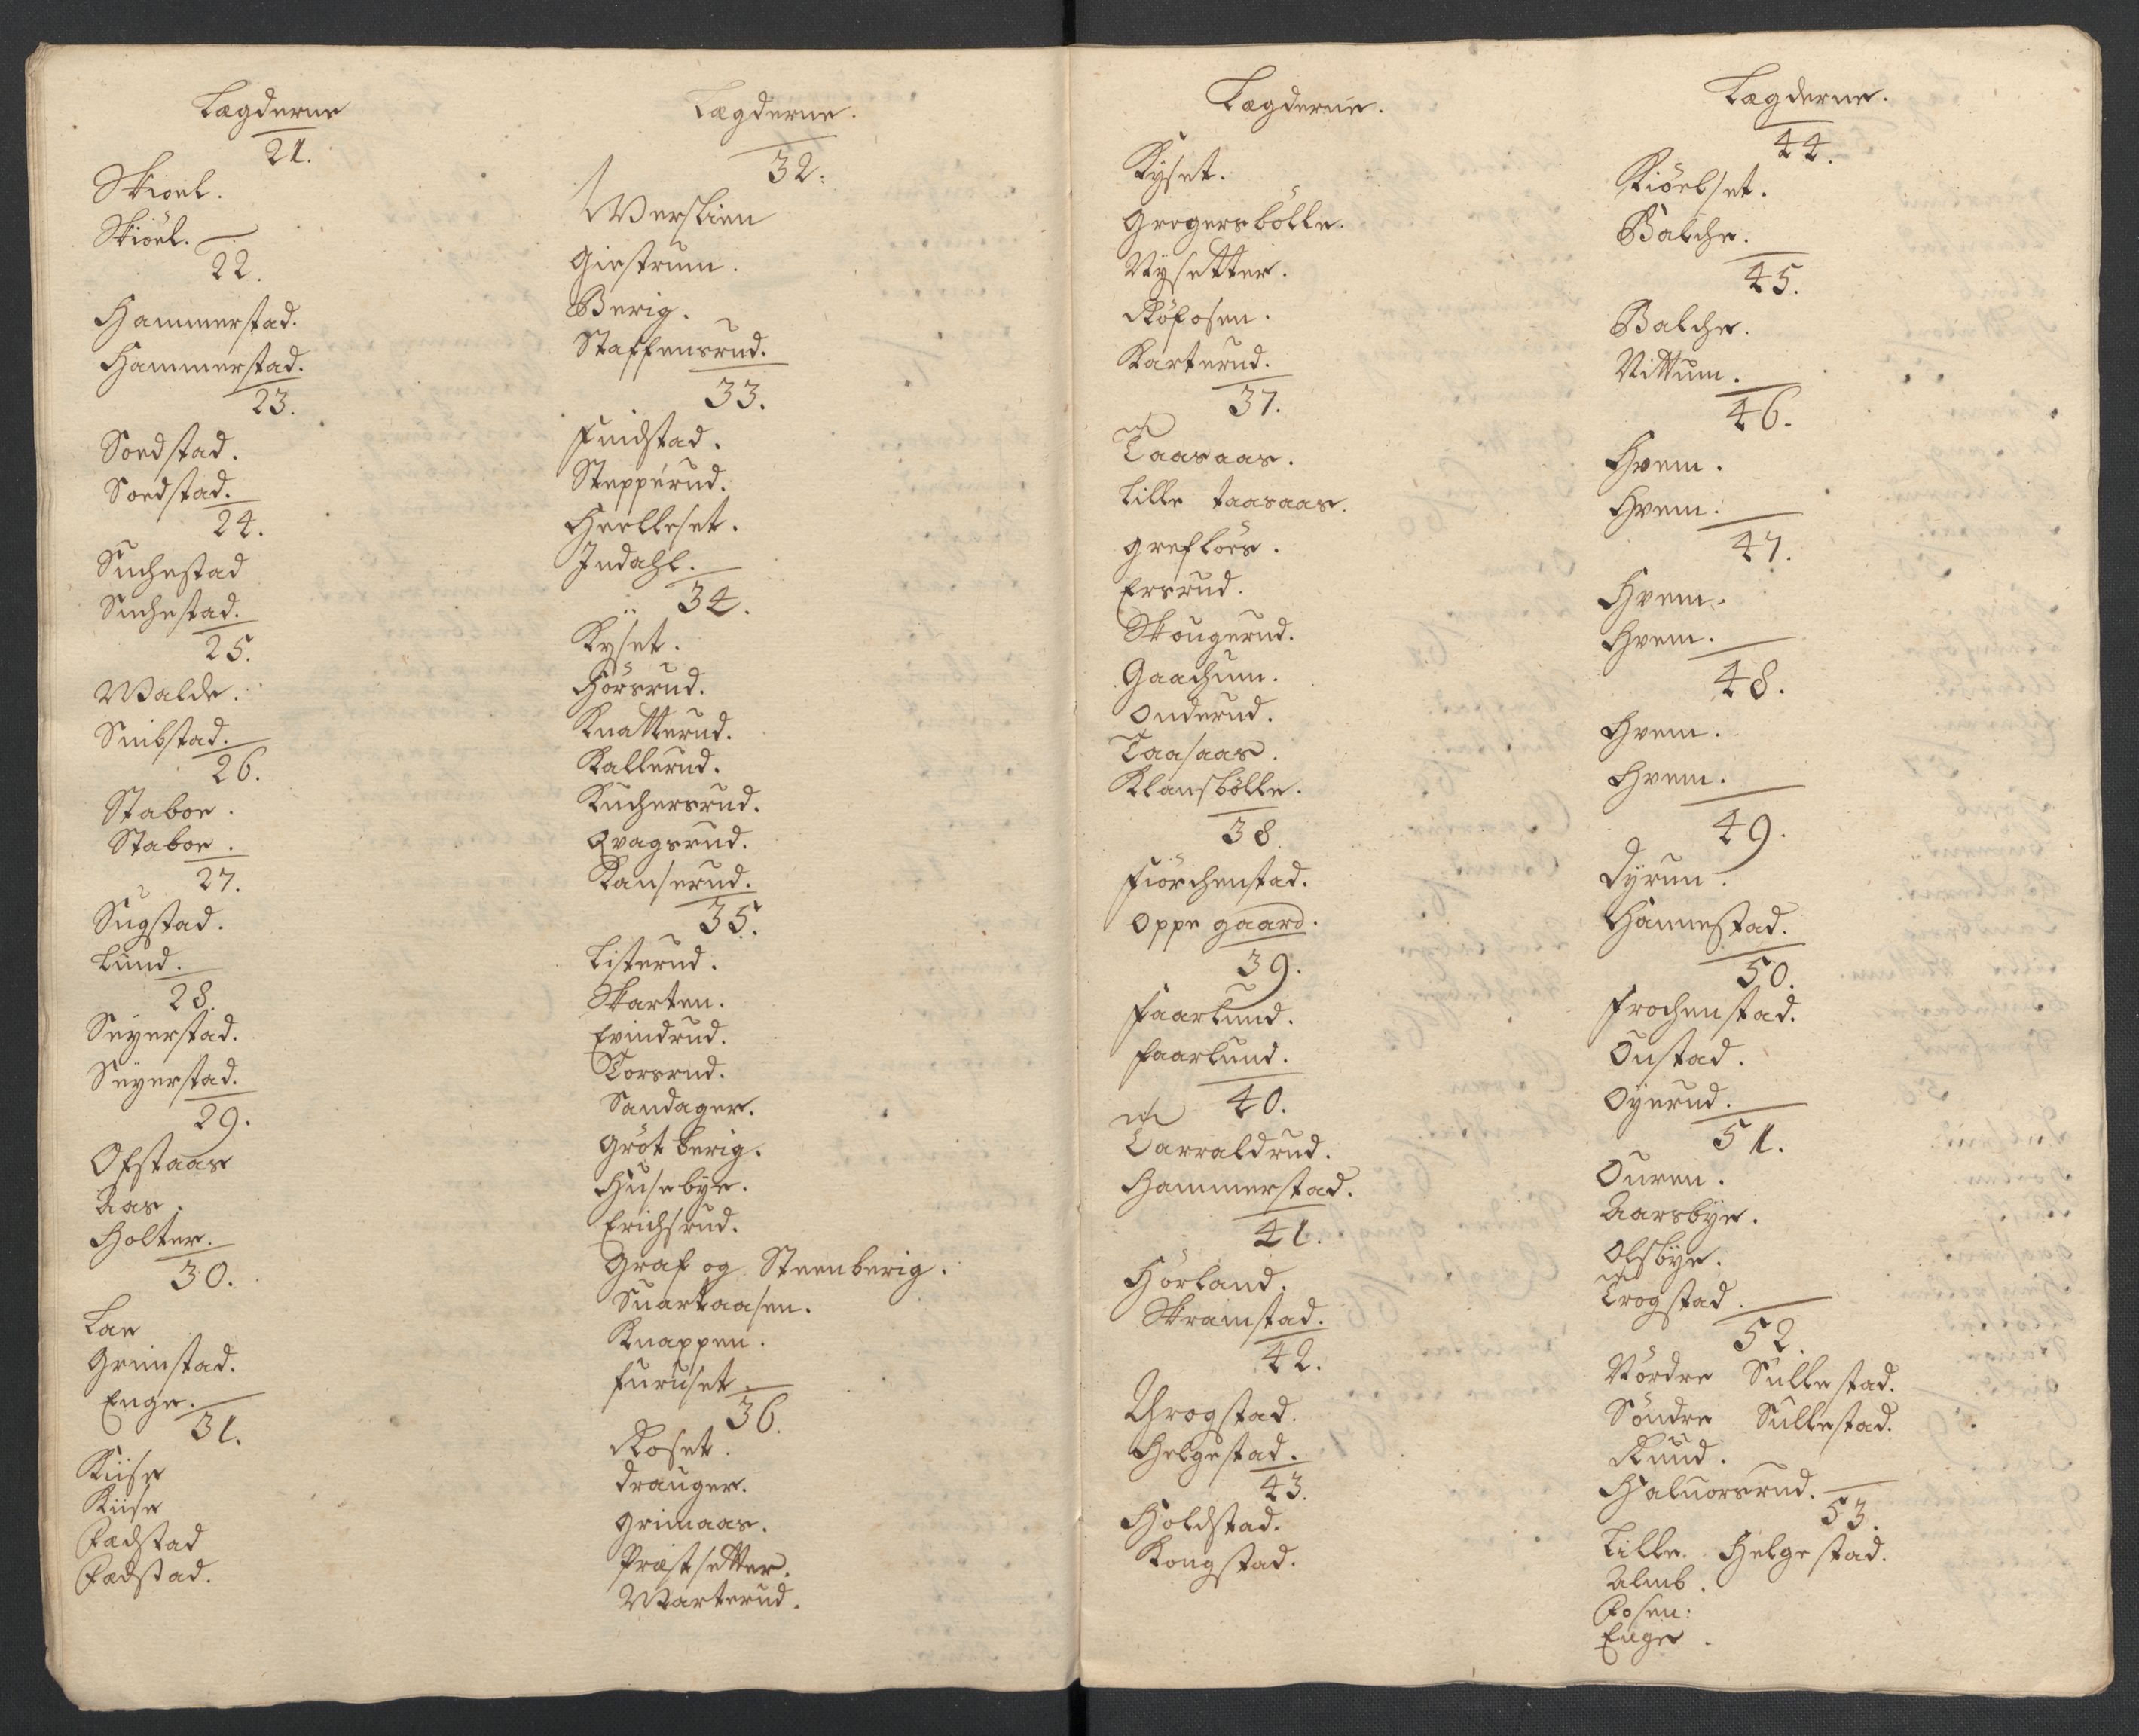 Lægderne
21.
Skioel.
Skiöel.
22.
Hammerstad.
Hammerstad.
23.
Soedstad.
Soedstad.
24.
Suchestad
Suchestad.
25.
Walde.
Smibstad.
26.
Staboe.
Staboe.
27.
Sugstad.
Lund.
28.
Seyerstad.
Seyerstad.
29.
Ofstaas
Aas.
Holter.
30.
Lae
Grimstad.
Enge.
31.
Kiise
Kiise
Rædstad
Rædstad.
Lægderne.
32.
Werslien
Giestrum.
Berig.
Staffensrud.
33.
Fuidstad.
Stepperud.
Heelleset.
Indahl.
34.
Kyset.
Hörsrud.
Knatterud.
Kallerud.
Kuchersrud.
Qvagsrud.
Kanserud.
35.
Listerud.
Skarten.
Evindrud.
Torsrud.
Sandager.
Gröt berig.
Husebye.
Erichsrud.
Graf og Steenberig.
Suartaasen.
Knappen.
Furuset.
36.
Roset.
Drauger.
Grimaas.
Præstsetter.
Marterud.
Lægderne.
Kyset.
Gregersbölle.
Nysetter.
Röfosen.
Karterud.
37.
Taasaas.
Lille taasaas.
Greflörs.
Ersrud.
Skougerud.
Gaachum.
Onderud.
Taasaas.
Klansbölle.
38.
Fiörchenstad.
Oppe gaard.
39.
Faarlund.
Faarlund.
40.
Tarraldrud.
Hammerstad.
41.
Hörland.
Skramstad.
42.
Throgstad.
Helgestad.
43.
Holdstad.
Kongstad.
Lægderne.
44.
Kiöelset.
Balche.
45.
Balche.
Nittum.
46.
Hvem.
Hvem.
47.
Hvem.
Hvem.
48.
Hvem.
Hvem.
49.
Dyrun.
Hannestad.
50.
Frochenstad.
Oustad.
Oyerud.
51.
Ouren.
Aarsbye.
Olsbye.
Trogstad.
52.
Nördre Sullestad.
Söndre Sullestad.
Ruud.
Haluorsrud.
53.
Lille Helgestad.
Almb.
Rosen:
Enger.